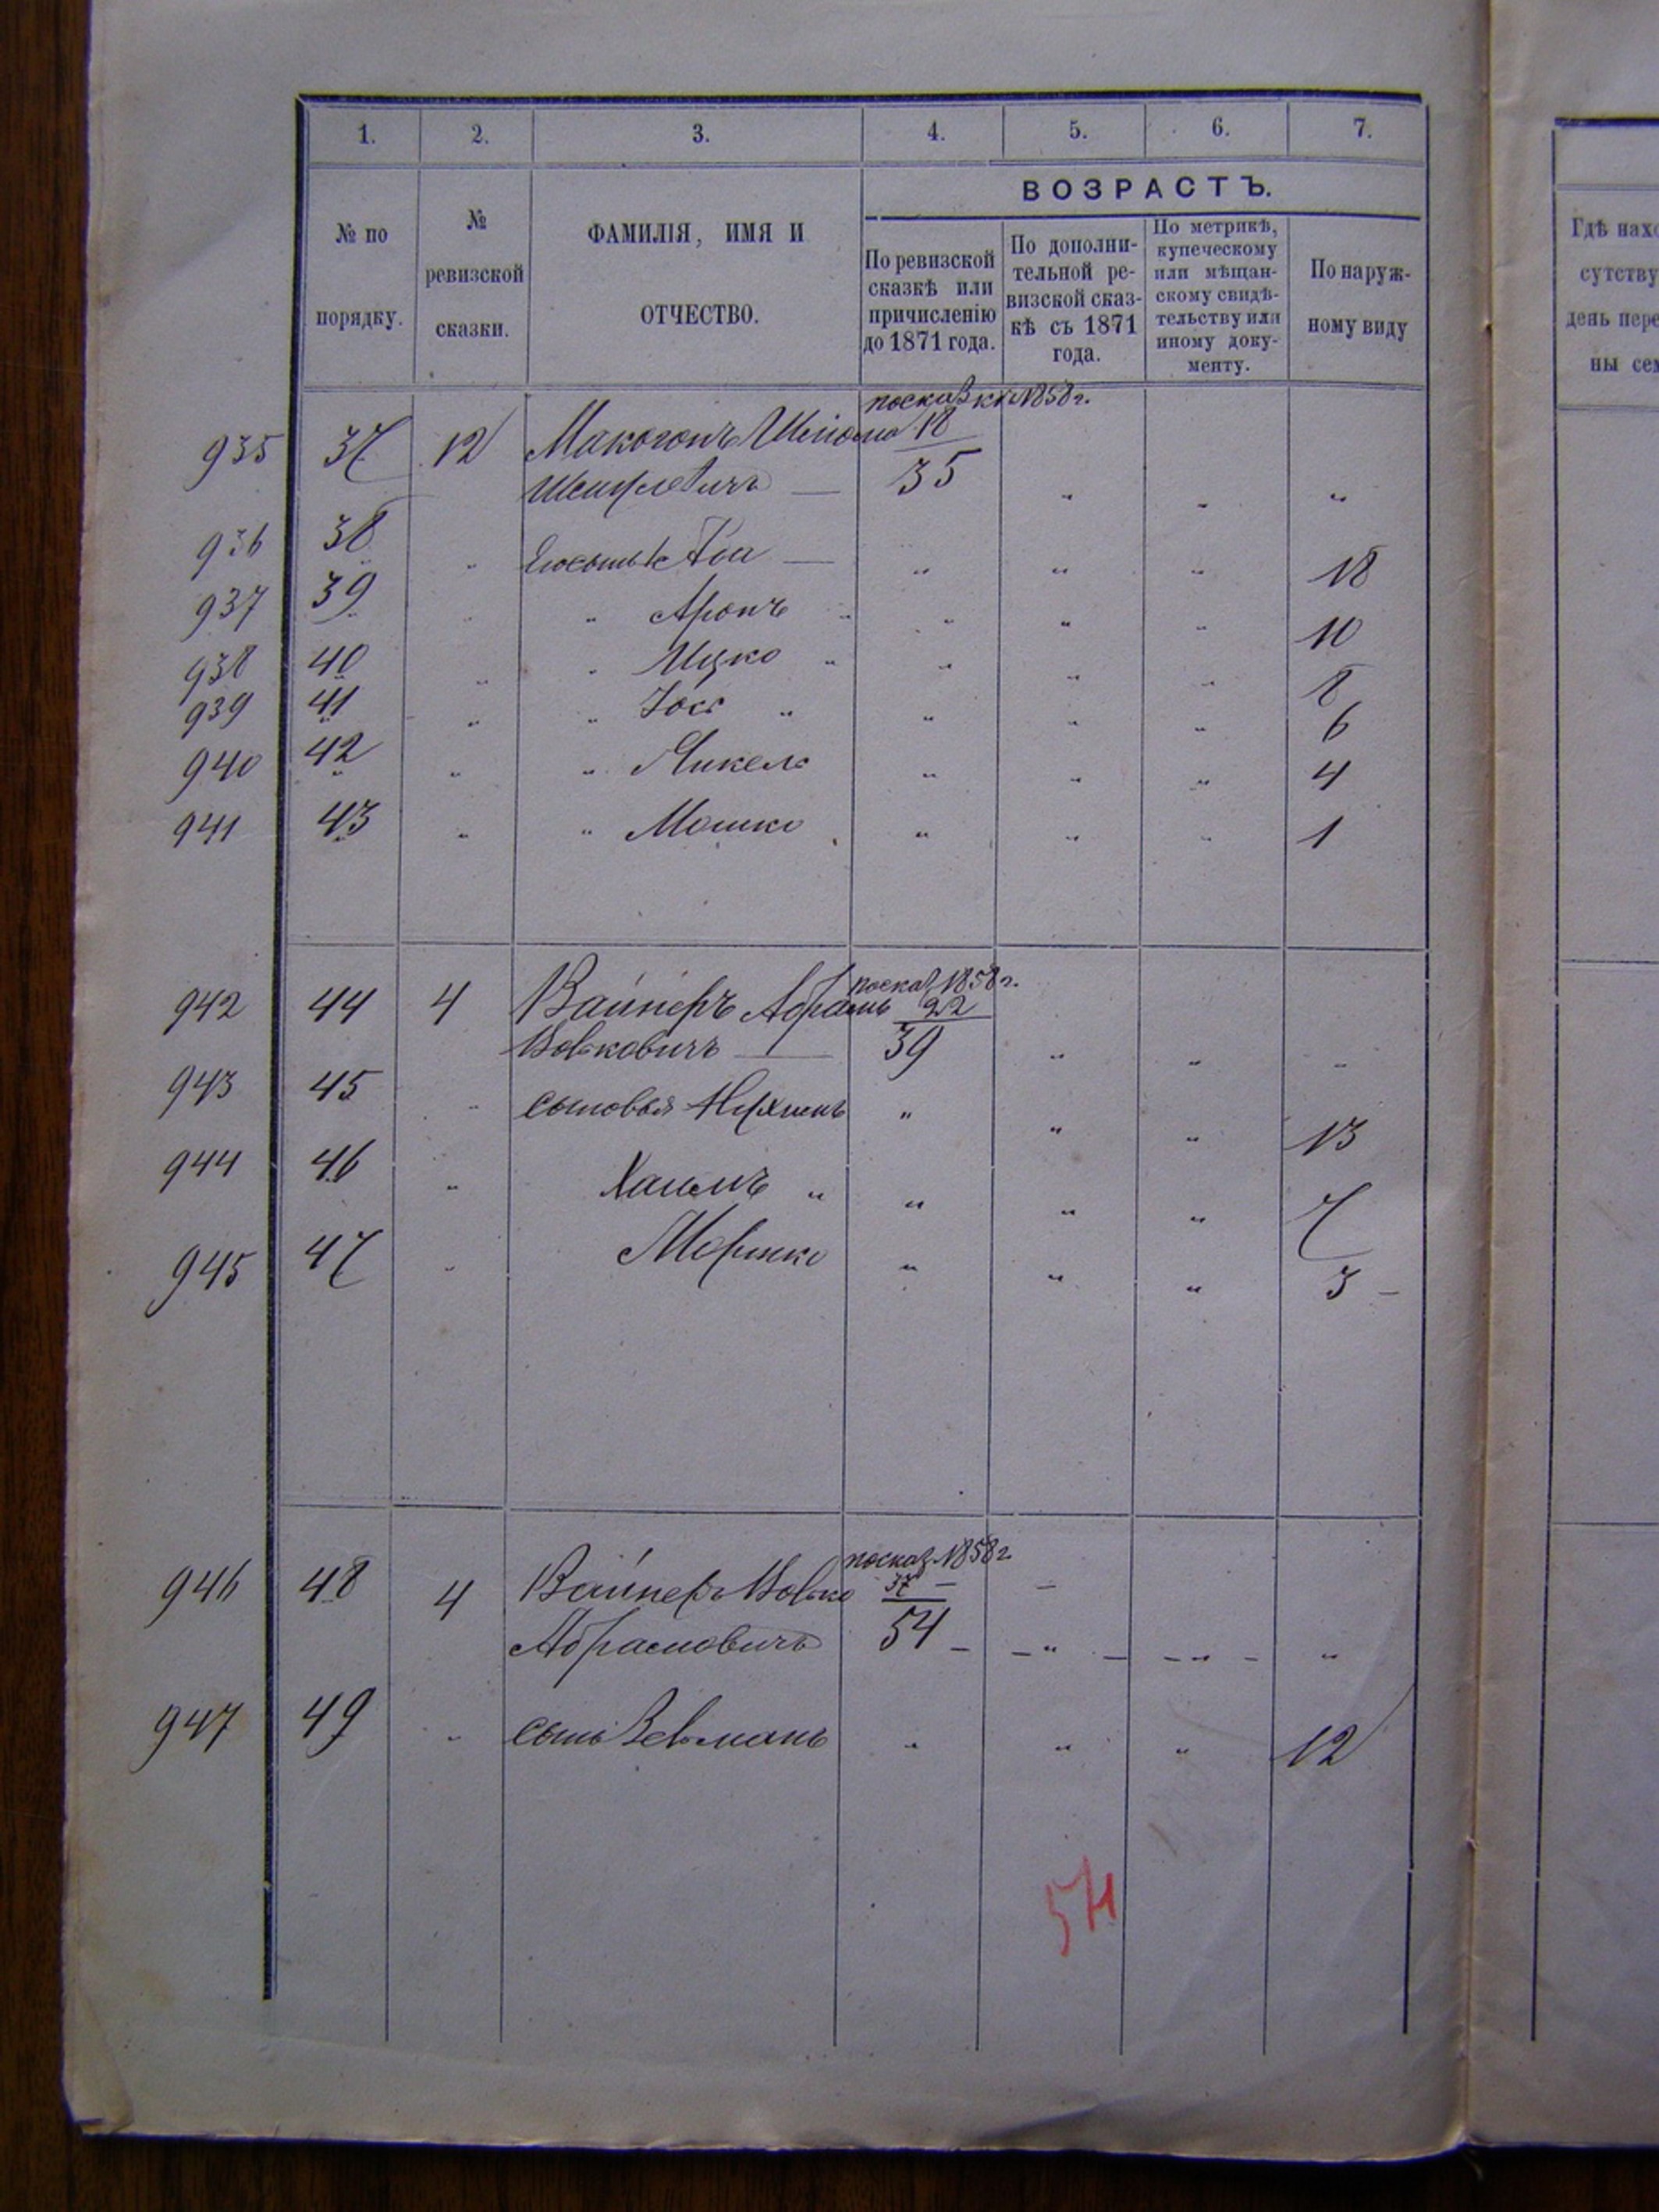 1. 2. 3. 4. 5. 6. 7.
ВОЗРАСТЪ.
№ по порядку.
№ ревизской сказки.
ФАМИЛІЯ, ИМЯ И ОТЧЕСТВО.
По ревизской сказкѣ или причисленію до 1871 года.
По дополнительной ревизской сказкѣ съ 1871 года.
По метрикѣ, купеческому или мѣщанскому свидѣтельству или иному документу.
По наружному виду
Гдѣ нахо
сутству
день пере
ны сем
по сказкѣ 1858 г.
935 37 12 Макогонъ Шлиома 18
35 " " "
936 38 " " " " 18
937 39 " " Аронъ " " " " 10
938 40 " " Ицко " " " " 8
939 41 " " Іось " " " " 6
940 42 " " Янкель " " " 4
941 43 " " Мошко " " " 1
по сказ. 1858 г.
942 44 4 Вайнеръ Абрамъ 22
Вовковичъ — 39 " " "
943 45 " сыновья " " " 13
944 46 " Хаимъ " " " " 7
945 47 " " " " 3 –
по сказ. 1858 г.
946 48 4 Вайнеръ Вовко 37 – –
Абрамовичъ 54 – – " – – " – "
947 49 " сынъ Зельманъ " " " 12
54